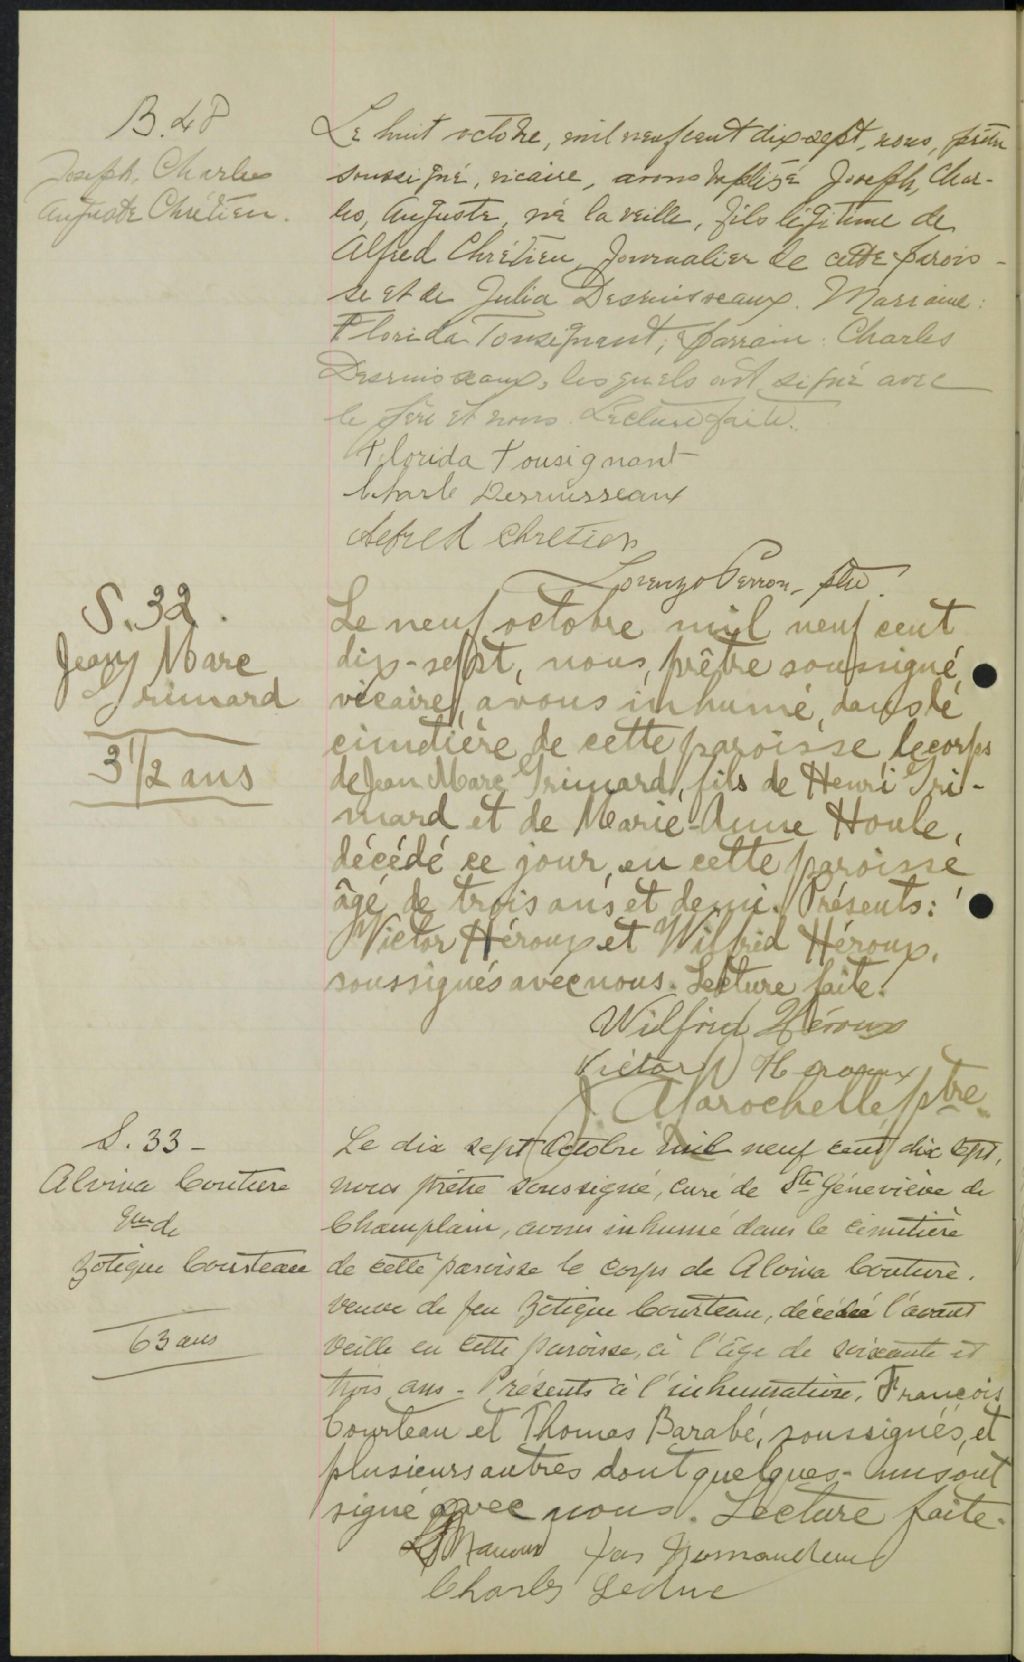 B. 48
Joseph, Charles
Auguste Chrétien.
Le huit octobre, mil neuf cent dix-sept, nous, prêtre
soussigné, vicaire, avons baptisé Joseph, Char-
les, Auguste, né la veille, fils légitime de
Alfred Chrétien, Journalier de cette parois-
se et de Julia Desruisseaux. Marraine:
Florida Tousignant; parrain: Charles
Desruisseaux, lesquels ont signé avec
le père et nous. Lecture faite.
Florida Tousignant
Charle Desruisseaux
Alfred Chretien
Lorenzo Perron, ptre.
S. 32.
Jean Marc
Grimard
3 1/2 ans
Le neuf octobre mil neuf cent
dix-sept, nous, prêtre soussigné,
vicaire, avons inhumé, dans le
cimetière de cette paroisse, le corps
de Jean Marc Grimard, fils de Henri Gri-
mard et de Marie-Anne Houle,
décédé ce jour, en cette paroisse
âgé de trois ans et demi. Présents:
Victor Héroux et Wilfrid Héroux,
soussignés avec nous. Lecture faite.
Wilfrid Héroux
Victor Heroux
J. A Larochelle ptre.
S. 33 -
Alvina Couture
Vve de
Zotique Courteau
63 ans
Le dix sept Octobre mil neuf cent dix sept,
nous prêtre soussigné, curé de Ste Géneviève de
Champlain, avons inhumé dans le cimetière
de cette paroisse le corps de Alvina Couture.
veuve de feu Zotique Courteau, décédée l'avant
veille en cette paroisse, à l'âge de soixante et
trois ans - Présents à l'inhumation, François
Courteau et Thomas Barabé, soussignés, et
plusieurs autres dont quelques-uns ont
signé avec nous. Lecture faite.
Charles Leduc